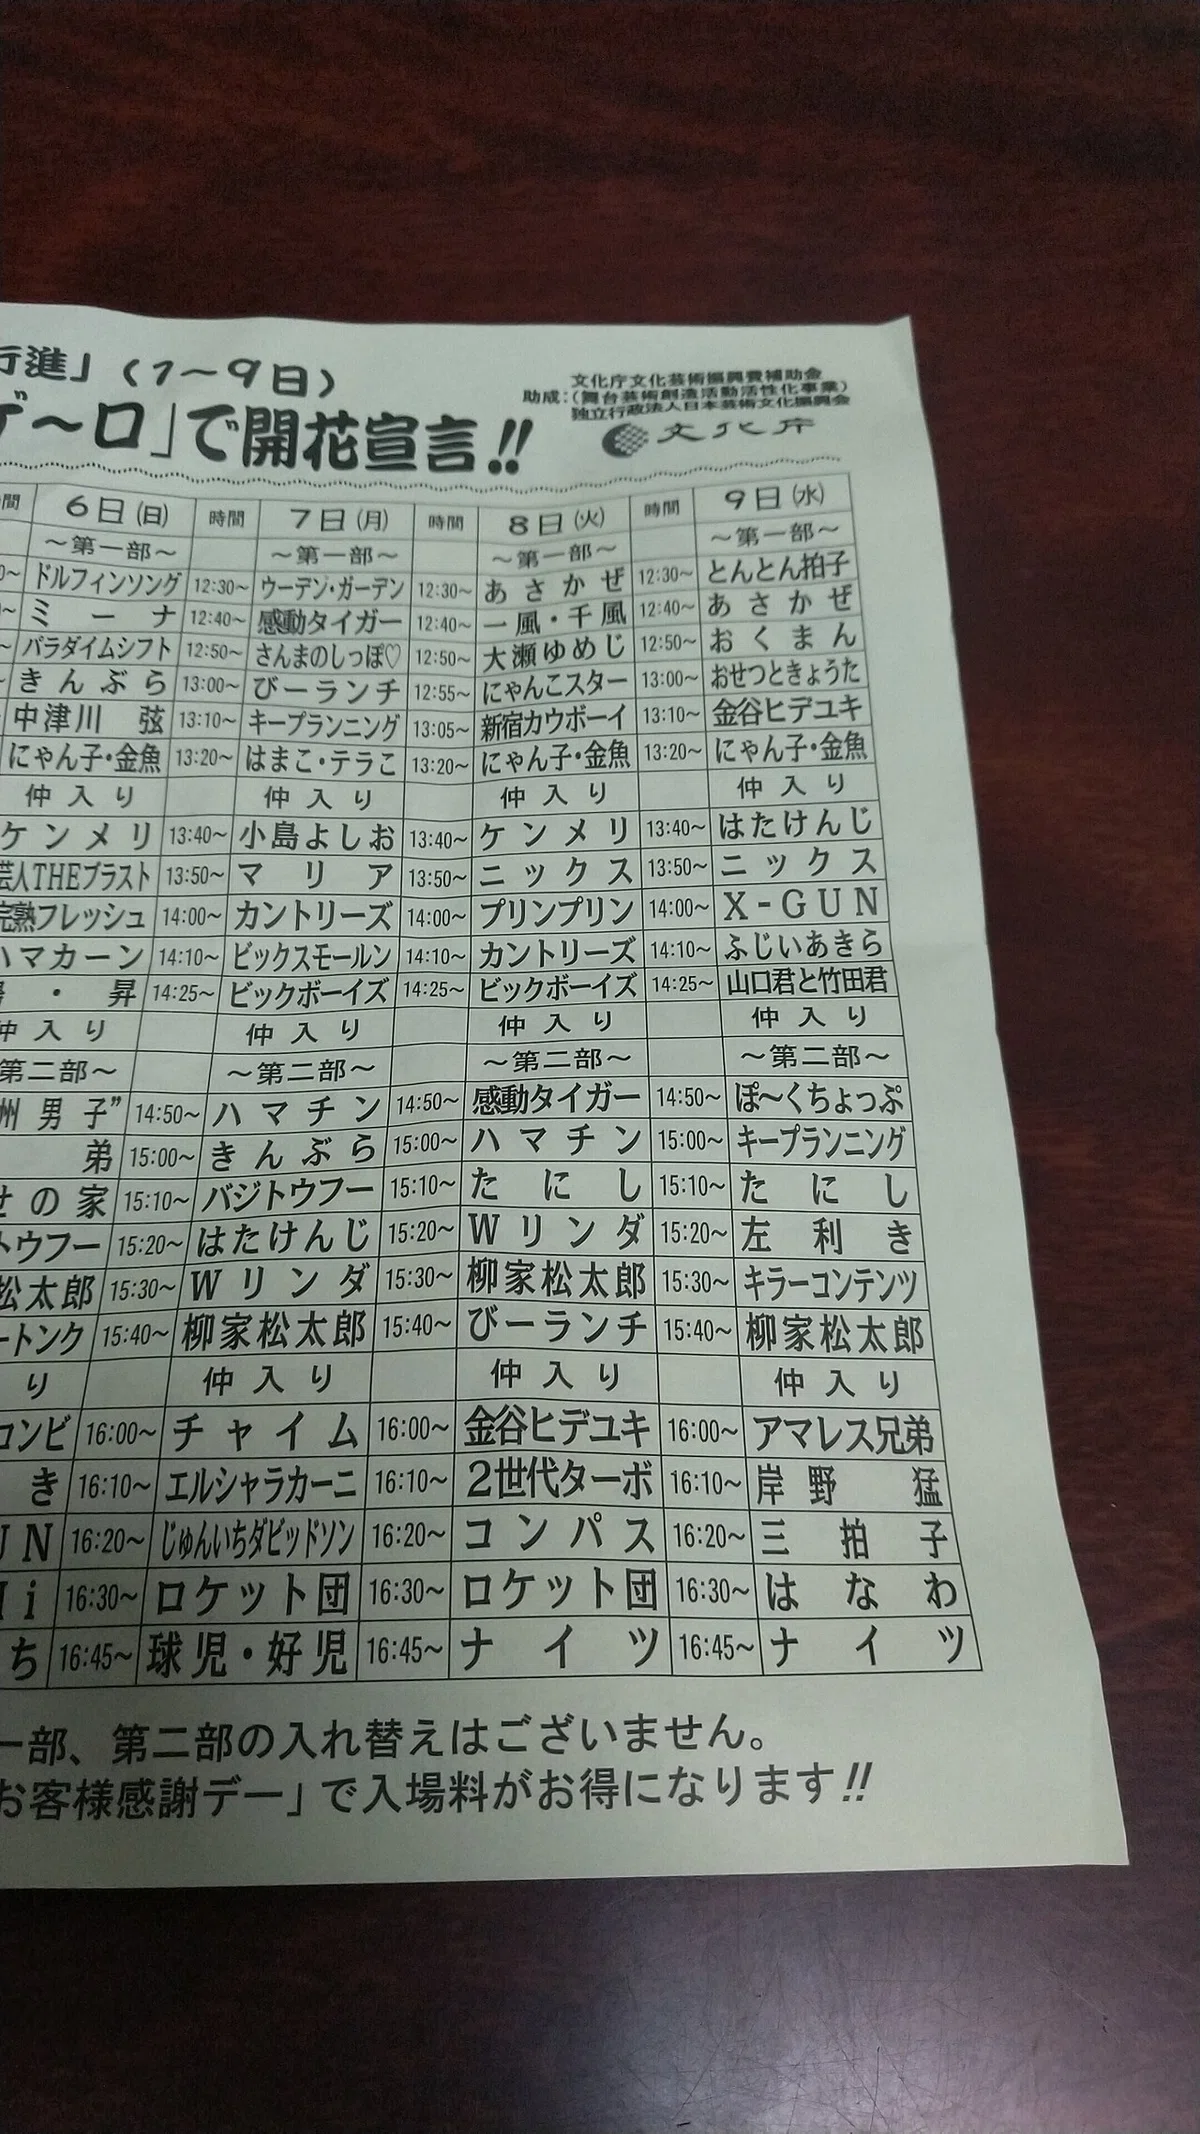 行進」（1～9日）
ゲ～ロ」で開花宣言!!
文化庁文化芸術振興費補助金
助成：（舞台芸術創造活動活性化事業）
独立行政法人日本芸術文化振興会
文化庁
6日(日) 時間 7日(月) 時間 8日(火) 時間 9日(水)
～第一部～ ～第一部～ ～第一部～ ～第一部～
ドルフィンソング 12:30～ ウーデン・ガーデン 12:30～ あさかぜ 12:30～ とんとん拍子
ミーナ 12:40～ 感動タイガー 12:40～ 一風・千風 12:40～ あさかぜ
パラダイムシフト 12:50～ さんまのしっぽ♡ 12:50～ 大瀬ゆめじ 12:50～ おくまん
きんぶら 13:00～ びーランチ 12:55～ にゃんこスター 13:00～ おせつときょうた
中津川 弦 13:10～ キープランニング 13:05～ 新宿カウボーイ 13:10～ 金谷ヒデユキ
にゃん子・金魚 13:20～ はまこ・テラこ 13:20～ にゃん子・金魚 13:20～ にゃん子・金魚
仲入り 仲入り 仲入り 仲入り
ケンメリ 13:40～ 小島よしお 13:40～ ケンメリ 13:40～ はたけんじ
芸人THEブラスト 13:50～ マリア 13:50～ ニックス 13:50～ ニックス
完熟フレッシュ 14:00～ カントリーズ 14:00～ プリンプリン 14:00～ X-GUN
ハマカーン 14:10～ ビックスモールン 14:10～ カントリーズ 14:10～ ふじいあきら
・昇 14:25～ ビックボーイズ 14:25～ ビックボーイズ 14:25～ 山口君と竹田君
仲入り 仲入り 仲入り 仲入り
第二部～ ～第二部～ ～第二部～ ～第二部～
州男子” 14:50～ ハマチン 14:50～ 感動タイガー 14:50～ ぽ～くちょっぷ
弟 15:00～ きんぶら 15:00～ ハマチン 15:00～ キープランニング
せの家 15:10～ バジトウフー 15:10～ たにし 15:10～ たにし
トウフー 15:20～ はたけんじ 15:20～ Wリンダ 15:20～ 左利き
松太郎 15:30～ Wリンダ 15:30～ 柳家松太郎 15:30～ キラーコンテンツ
ートンク 15:40～ 柳家松太郎 15:40～ びーランチ 15:40～ 柳家松太郎
り 仲入り 仲入り 仲入り
コンビ 16:00～ チャイム 16:00～ 金谷ヒデユキ 16:00～ アマレス兄弟
き 16:10～ エルシャラカーニ 16:10～ 2世代ターボ 16:10～ 岸野 猛
UN 16:20～ じゅんいちダビッドソン 16:20～ コンパス 16:20～ 三拍子
i 16:30～ ロケット団 16:30～ ロケット団 16:30～ はなわ
ち 16:45～ 球児・好児 16:45～ ナイツ 16:45～ ナイツ
一部、第二部の入れ替えはございません。
お客様感謝デー」で入場料がお得になります!!